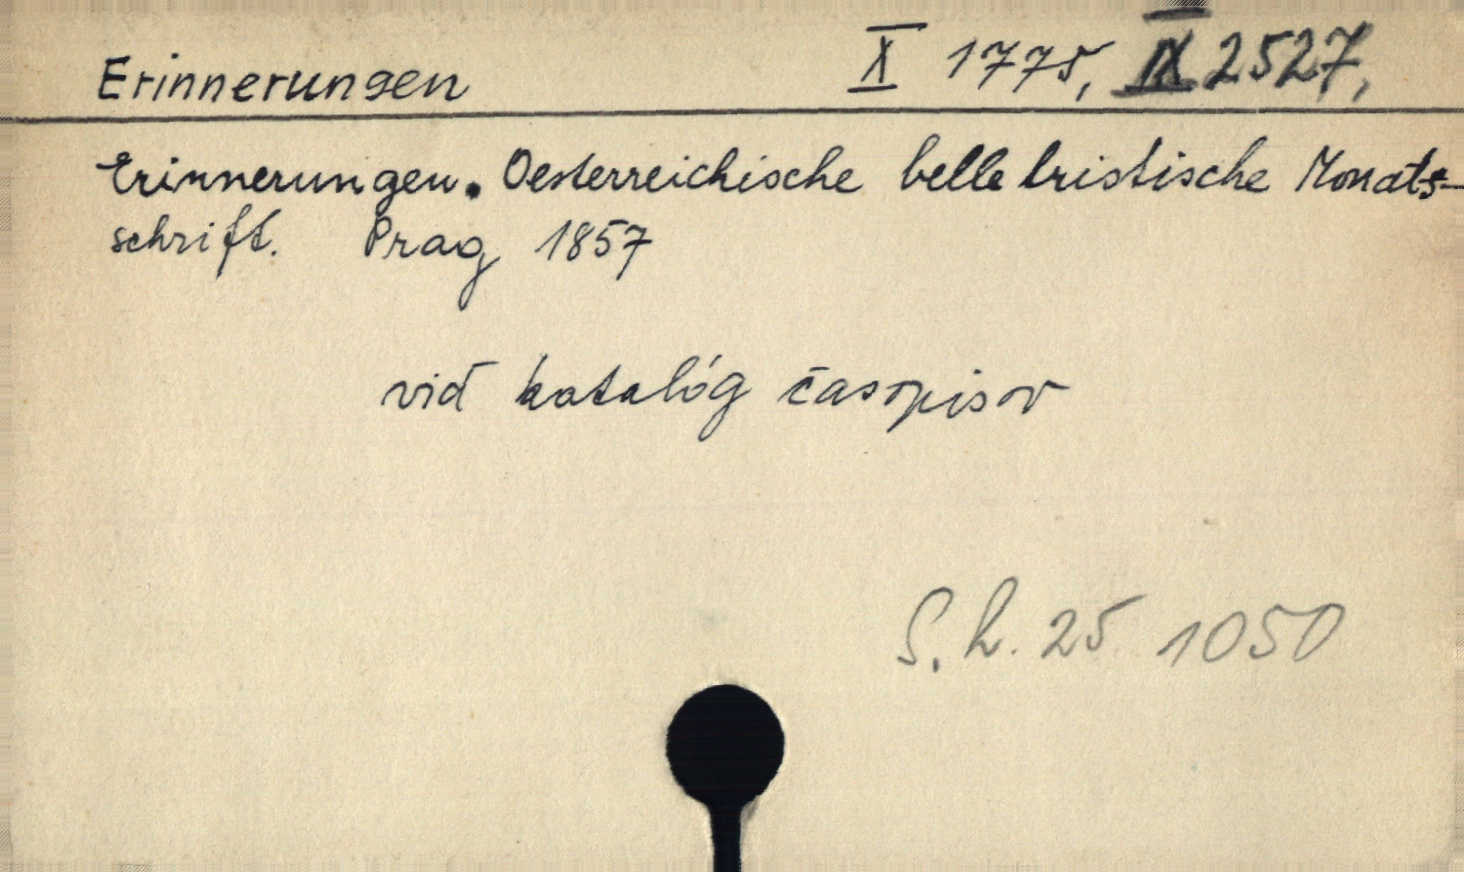 Erinnerungen X 1775, IX 2527,
Erinnerungen. Oesterreichische belletristische Monats-
schrift. Prag 1857
viď katalóg časopisov
S. h. 25 1050